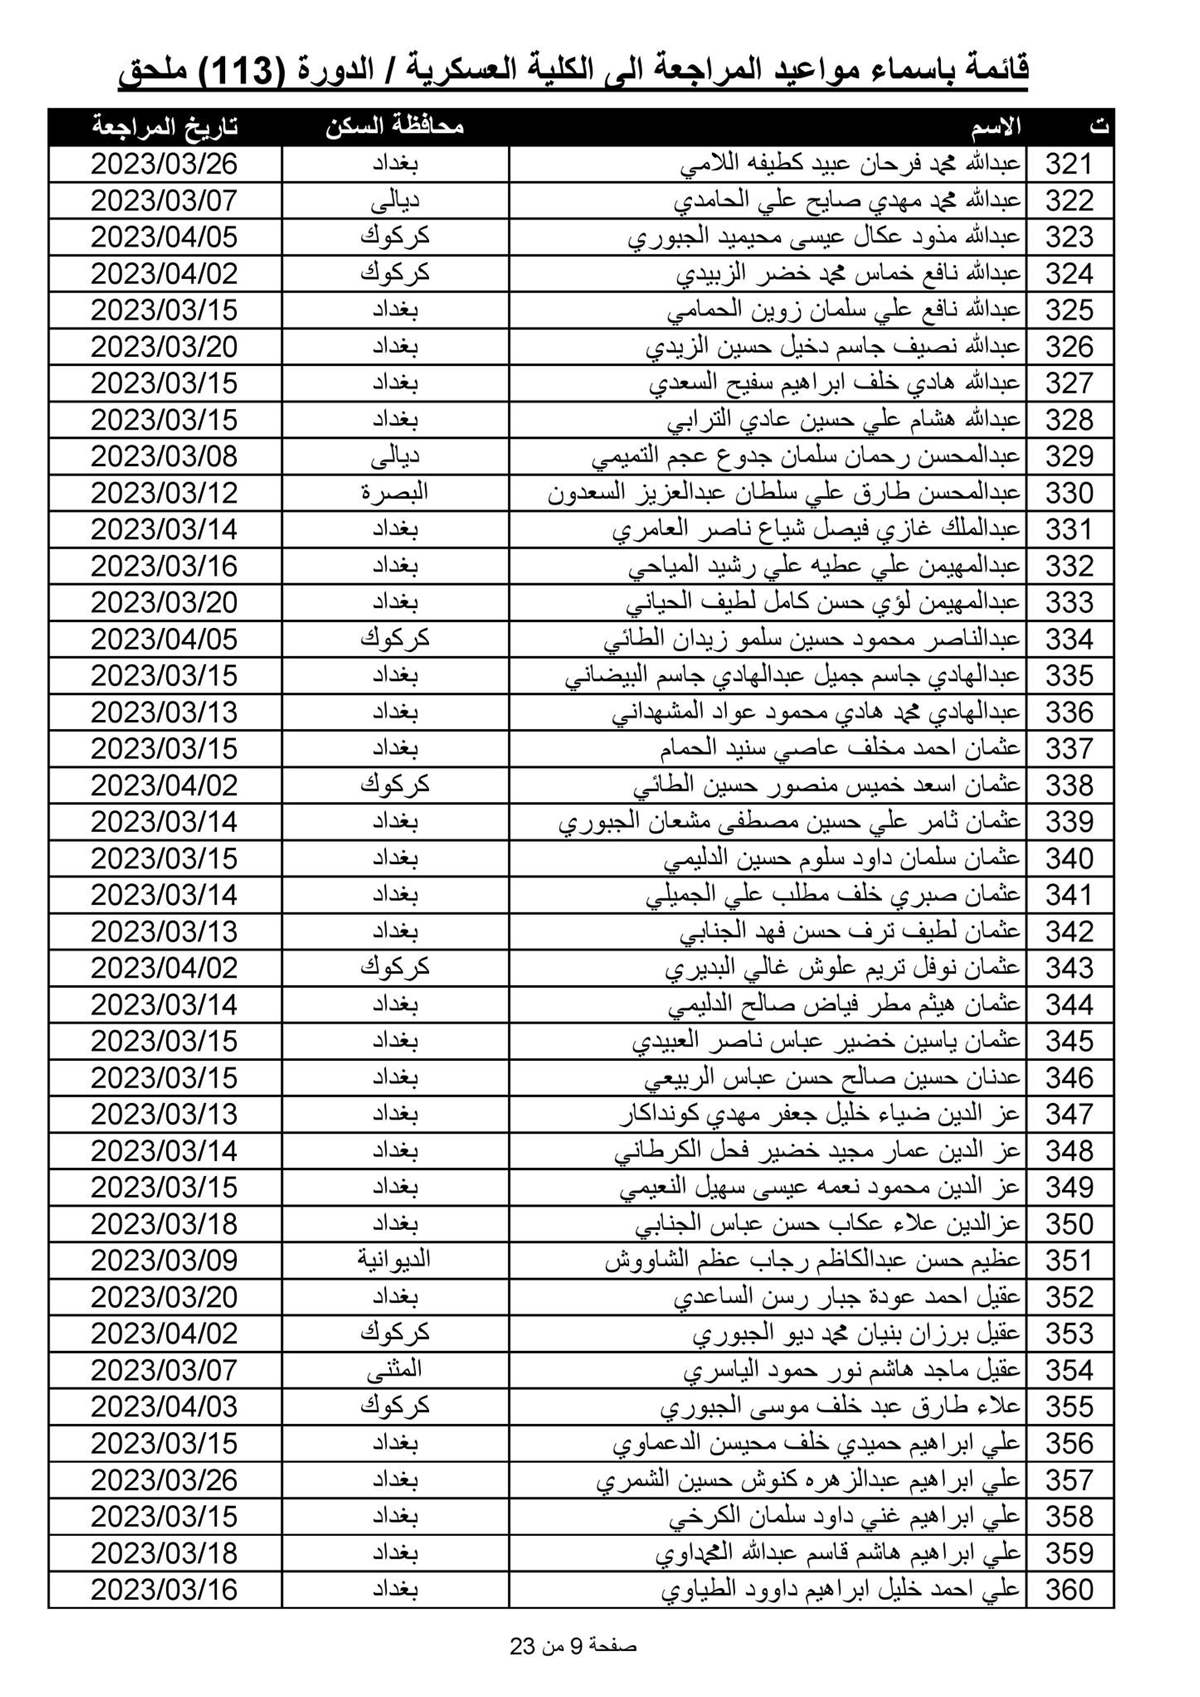 قائمة باسماء مواعيد المراجعة الى الكلية العسكرية / الدورة (113) ملحق
ت الاسم محافظة السكن تاريخ المراجعة
321 عبدالله محمد فرحان عبيد كطيفه اللامي بغداد 2023/03/26
322 عبدالله محمد مهدي صايح علي الحامدي ديالى 2023/03/07
323 عبدالله مذود عكال عيسى محيميد الجبوري كركوك 2023/04/05
324 عبدالله نافع خماس محمد خضر الزبيدي كركوك 2023/04/02
325 عبدالله نافع علي سلمان زوين الحمامي بغداد 2023/03/15
326 عبدالله نصيف جاسم دخيل حسين الزيدي بغداد 2023/03/20
327 عبدالله هادي خلف ابراهيم سفيح السعدي بغداد 2023/03/15
328 عبدالله هشام علي حسين عادي الترابي بغداد 2023/03/15
329 عبدالمحسن رحمان سلمان جدوع عجم التميمي ديالى 2023/03/08
330 عبدالمحسن طارق علي سلطان عبدالعزيز السعدون البصرة 2023/03/12
331 عبدالملك غازي فيصل شياع ناصر العامري بغداد 2023/03/14
332 عبدالمهيمن علي عطيه علي رشيد المياحي بغداد 2023/03/16
333 عبدالمهيمن لؤي حسن كامل لطيف الحياني بغداد 2023/03/20
334 عبدالناصر محمود حسين سلمو زيدان الطائي كركوك 2023/04/05
335 عبدالهادي جاسم جميل عبدالهادي جاسم البيضاني بغداد 2023/03/15
336 عبدالهادي محمد هادي محمود عواد المشهداني بغداد 2023/03/13
337 عثمان احمد مخلف عاصي سنيد الحمام بغداد 2023/03/15
338 عثمان اسعد خميس منصور حسين الطائي كركوك 2023/04/02
339 عثمان ثامر علي حسين مصطفى مشعان الجبوري بغداد 2023/03/14
340 عثمان سلمان داود سلوم حسين الدليمي بغداد 2023/03/15
341 عثمان صبري خلف مطلب علي الجميلي بغداد 2023/03/14
342 عثمان لطيف ترف حسن فهد الجنابي بغداد 2023/03/13
343 عثمان نوفل تريم علوش غالي البديري كركوك 2023/04/02
344 عثمان هيثم مطر فياض صالح الدليمي بغداد 2023/03/14
345 عثمان ياسين خضير عباس ناصر العبيدي بغداد 2023/03/15
346 عدنان حسين صالح حسن عباس الربيعي بغداد 2023/03/15
347 عز الدين ضياء خليل جعفر مهدي كونداكار بغداد 2023/03/13
348 عز الدين عمار مجيد خضير فحل الكرطاني بغداد 2023/03/14
349 عز الدين محمود نعمه عيسى سهيل النعيمي بغداد 2023/03/15
350 عزالدين علاء عكاب حسن عباس الجنابي بغداد 2023/03/18
351 عظيم حسن عبدالكاظم رجاب عظم الشاووش الديوانية 2023/03/09
352 عقيل احمد عودة جبار رسن الساعدي بغداد 2023/03/20
353 عقيل برزان بنيان محمد ديو الجبوري كركوك 2023/04/02
354 عقيل ماجد هاشم نور حمود الياسري المثنى 2023/03/07
355 علاء طارق عبد خلف موسى الجبوري كركوك 2023/04/03
356 علي ابراهيم حميدي خلف محيسن الدعماوي بغداد 2023/03/15
357 علي ابراهيم عبدالزهره كنوش حسين الشمري بغداد 2023/03/26
358 علي ابراهيم غني داود سلمان الكرخي بغداد 2023/03/15
359 علي ابراهيم هاشم قاسم عبدالله المحمداوي بغداد 2023/03/18
360 علي احمد خليل ابراهيم داوود الطياوي بغداد 2023/03/16
صفحة 9 من 23